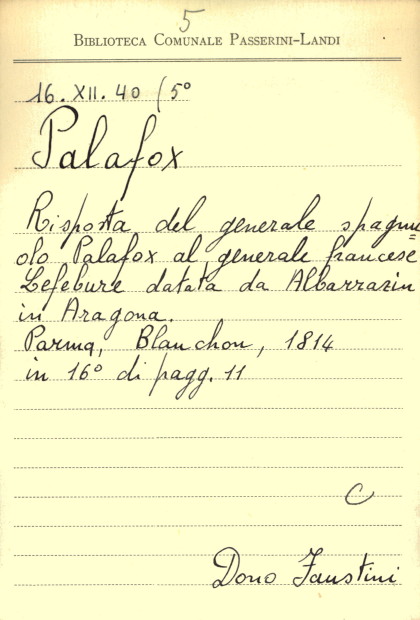 5
BIBLIOTECA COMUNALE PASSERINI-LANDI
16. XII. 40 (5°
Palafox
Risposta del generale spagnu=
olo Palafox al generale francese
Lefebure datata da Albarrazin
in Aragona.
Parma, Blanchon, 1814
in 16° di pagg. 11
C
Dono Faustini